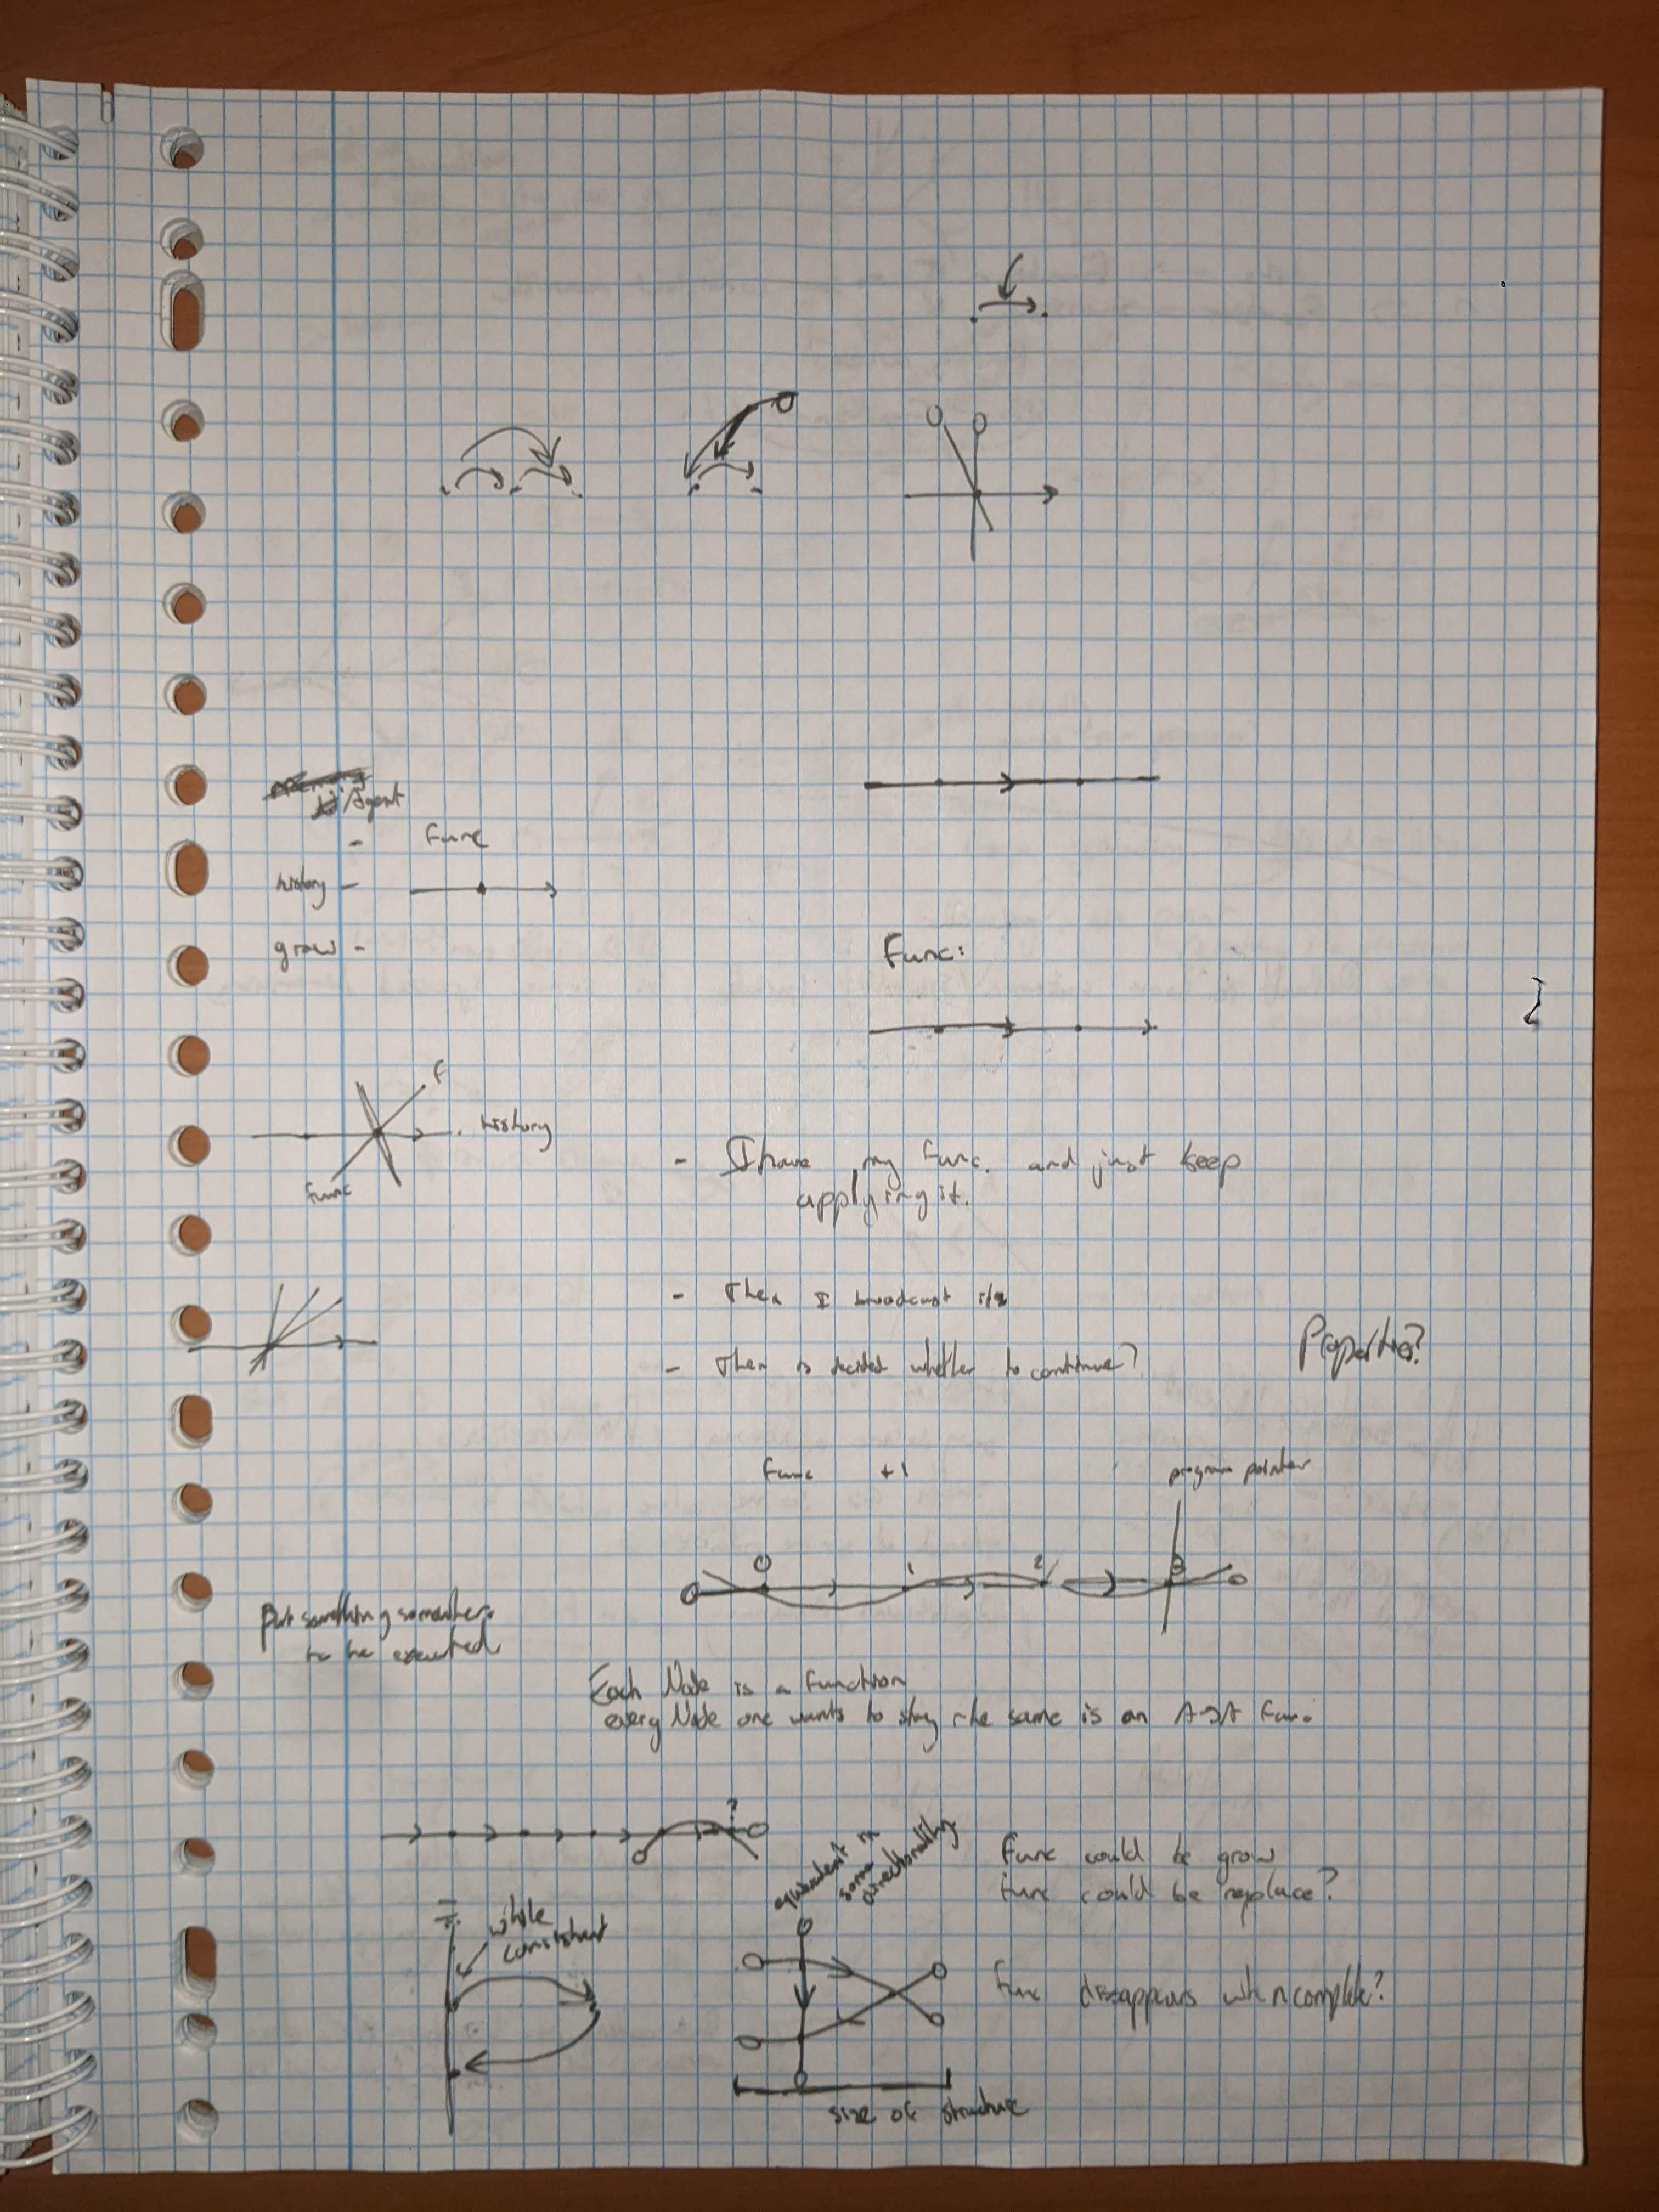 Agent
- Func
history -
grow -
Func:
F
history
func
- I have my Func. and just keep
applying it.
- Then I broadcast it
- Then is decided whether to continue?
Properties?
Func +1
program pointer
0 1 2 3
Put something somewhere
to be executed
Each Node is a function
every Node one wants to stay the same is an A->A Func.
?
equivalent in
some
directionality
Func could be grow
func could be replace?
while
consistent
Func disappears when complete?
size of structure